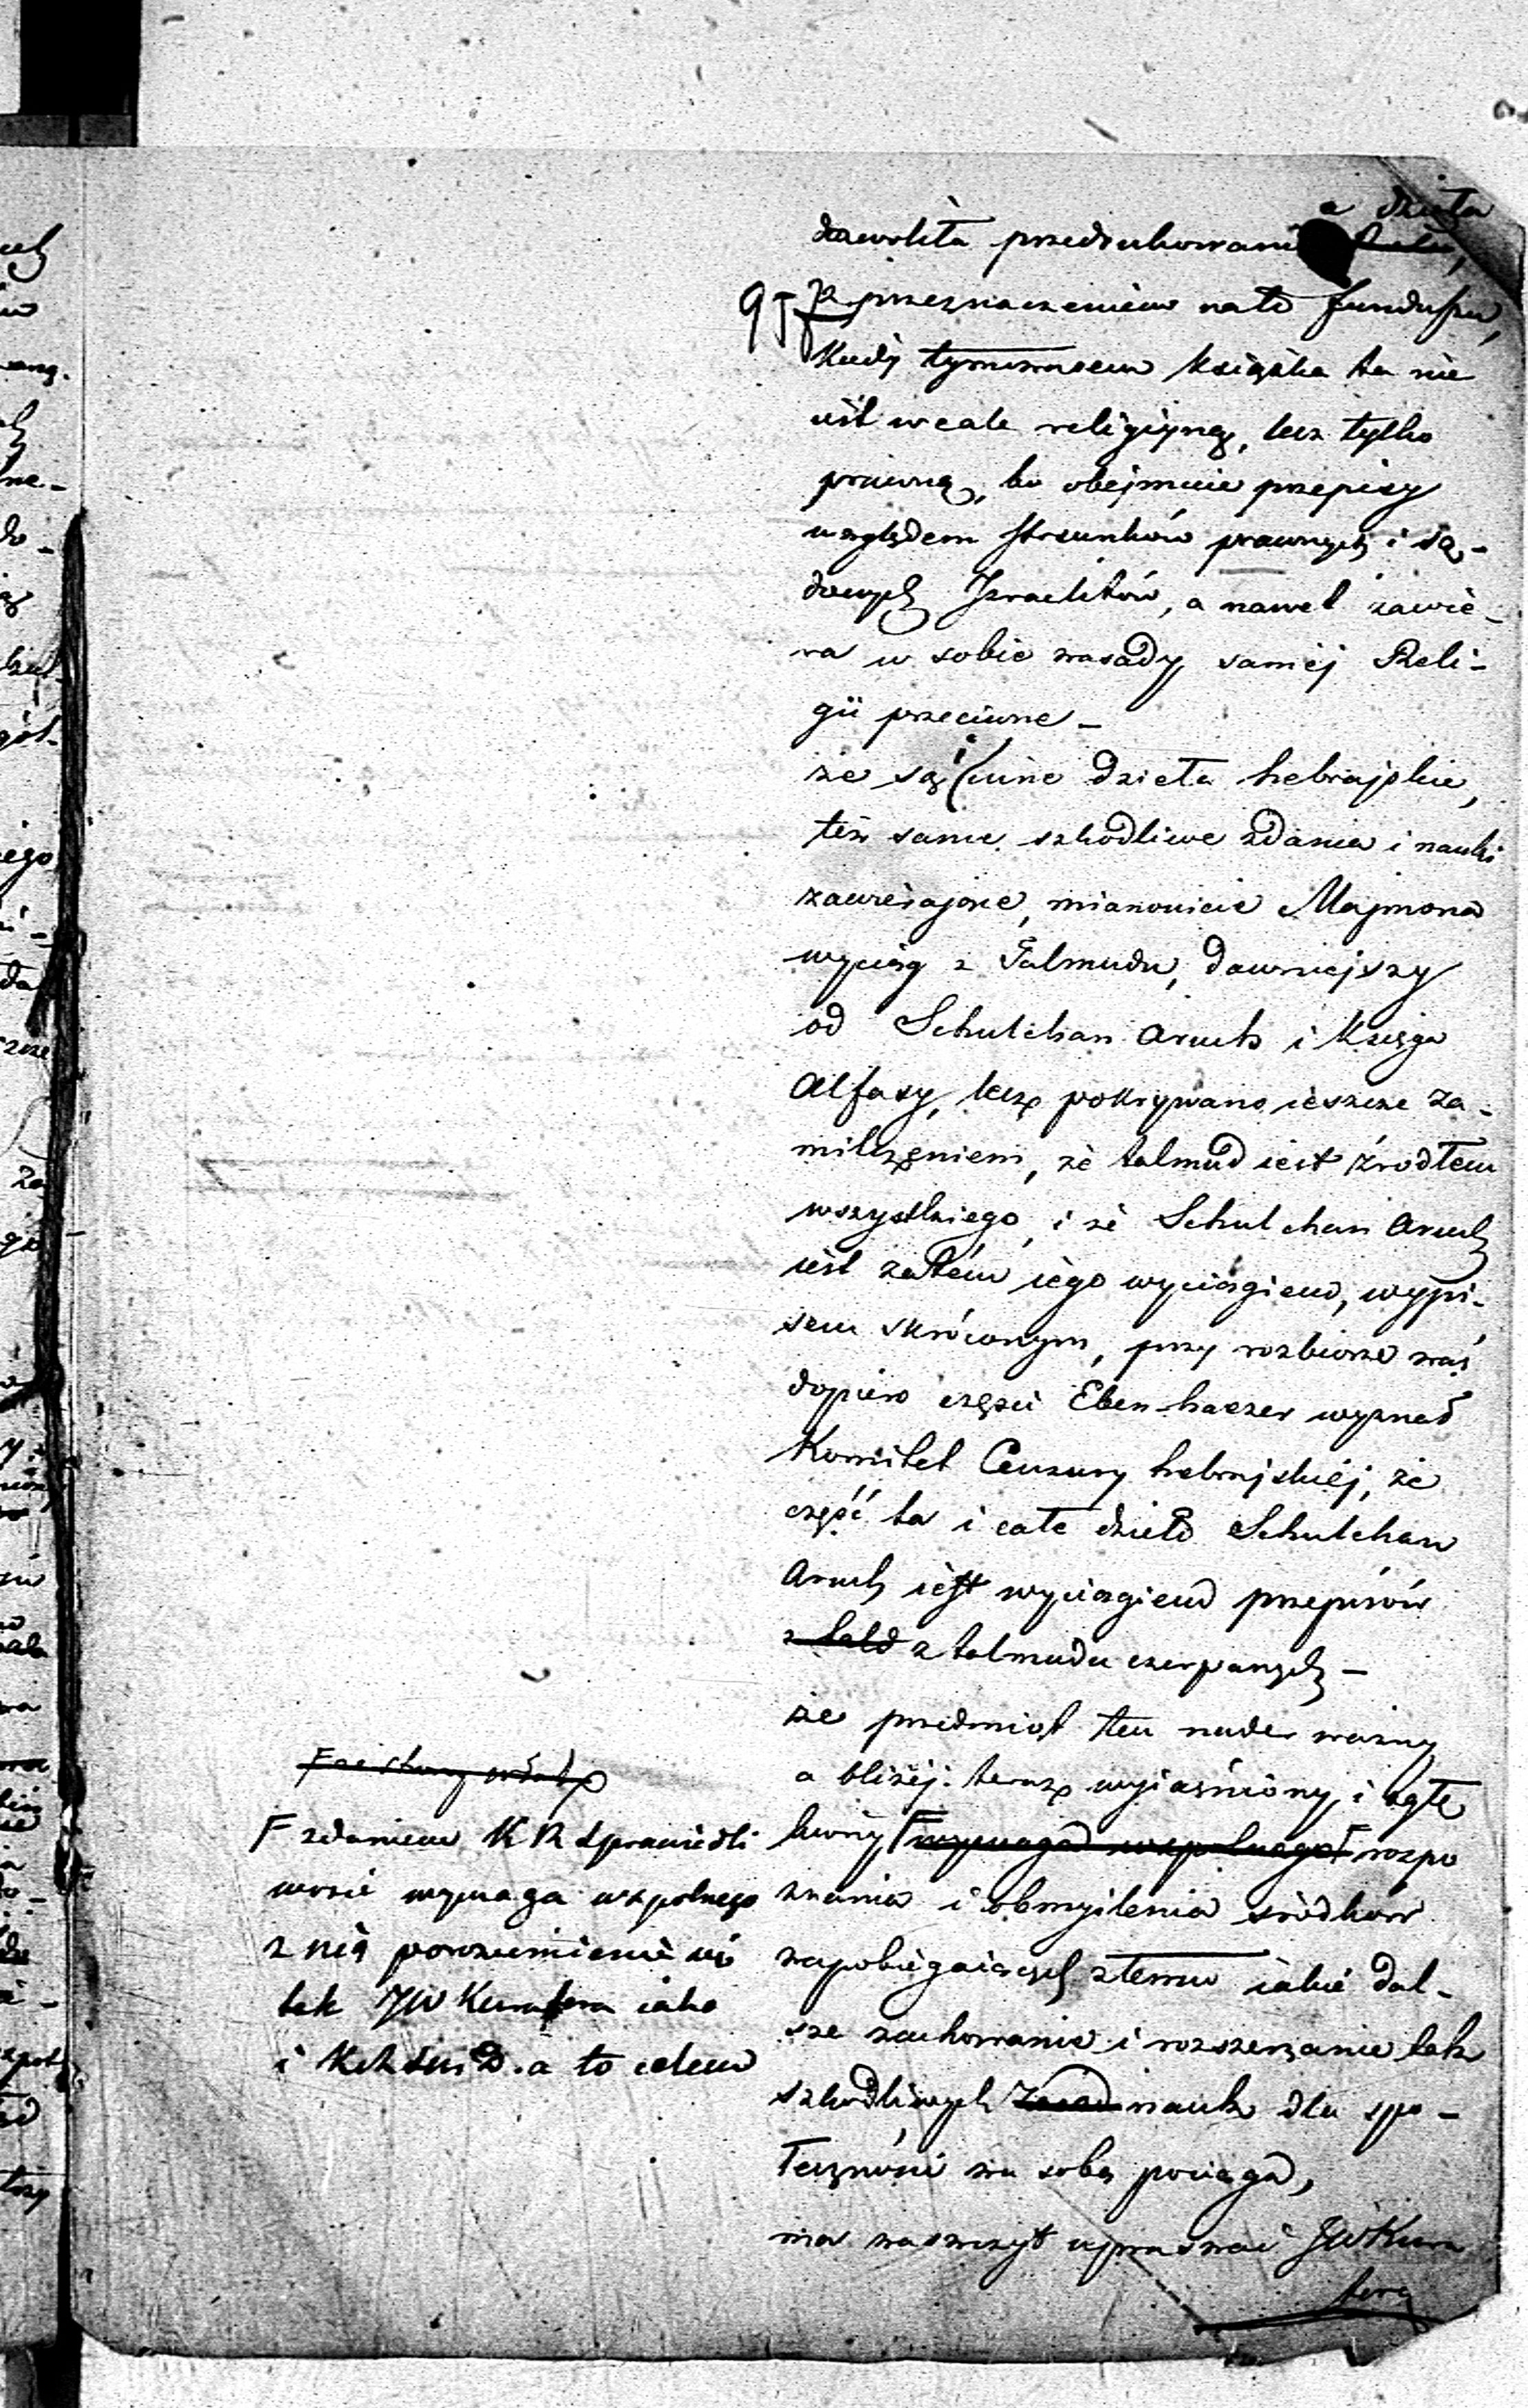 dozwoliła przedrukowania dzieła
z przeznaczeniem na to funduszu,
Kiedy tymczasem książka ta nie
iest wcale religijną, lecz tylko
prawną, bo obejmuie przepisy
względem stosunków prawnych i są-
dowych Izraelitów, a nawet zawie-
ra w sobie zasady saméj Reli-
gii przeciwne –
że są i inne dzieła hebrajskie,
też same szkodliwe zdania i nauki
zawieraiące, mianowicie Majmona
wyciąg z Talmudu, dawniejszy
od Schulchan Aruch i Księga
Alfasy, lecz pokrywano ieszcze za-
milczeniem, że talmud iest źrodłem
wszystkiego, i że Schulchan Aruch
iest zatém iego wyciągiem, wypi-
sem skróconym, przy rozbiorze zaś
dopiero części Eben haezer wyznał
Komitet Cenzury hebrajskiéj, że
część ta i całe dzieło Schulchan
Aruch iest wyciągiem przepisów
z talmudu czerpanych –
że przedmiot ten nader ważny
a bliżéj teraz wyiaśniony, i zgłę
biony wymaga wspolnego rozpo
znania i obmyślenia srodków
zapobiegaiących złemu iakie dal-
sze zachowanie i rozszerzanie tak
szkodliwych nauk dla spo-
łeczności za sobą pociąga,
ma zaszczyt upraszać JW Kura
tora
F zdaniem K R Sprawiedli
wości wymaga wspolnego
z nią porozumienia się
tak JW Kuratora iako
i K R S W i D. a to celem